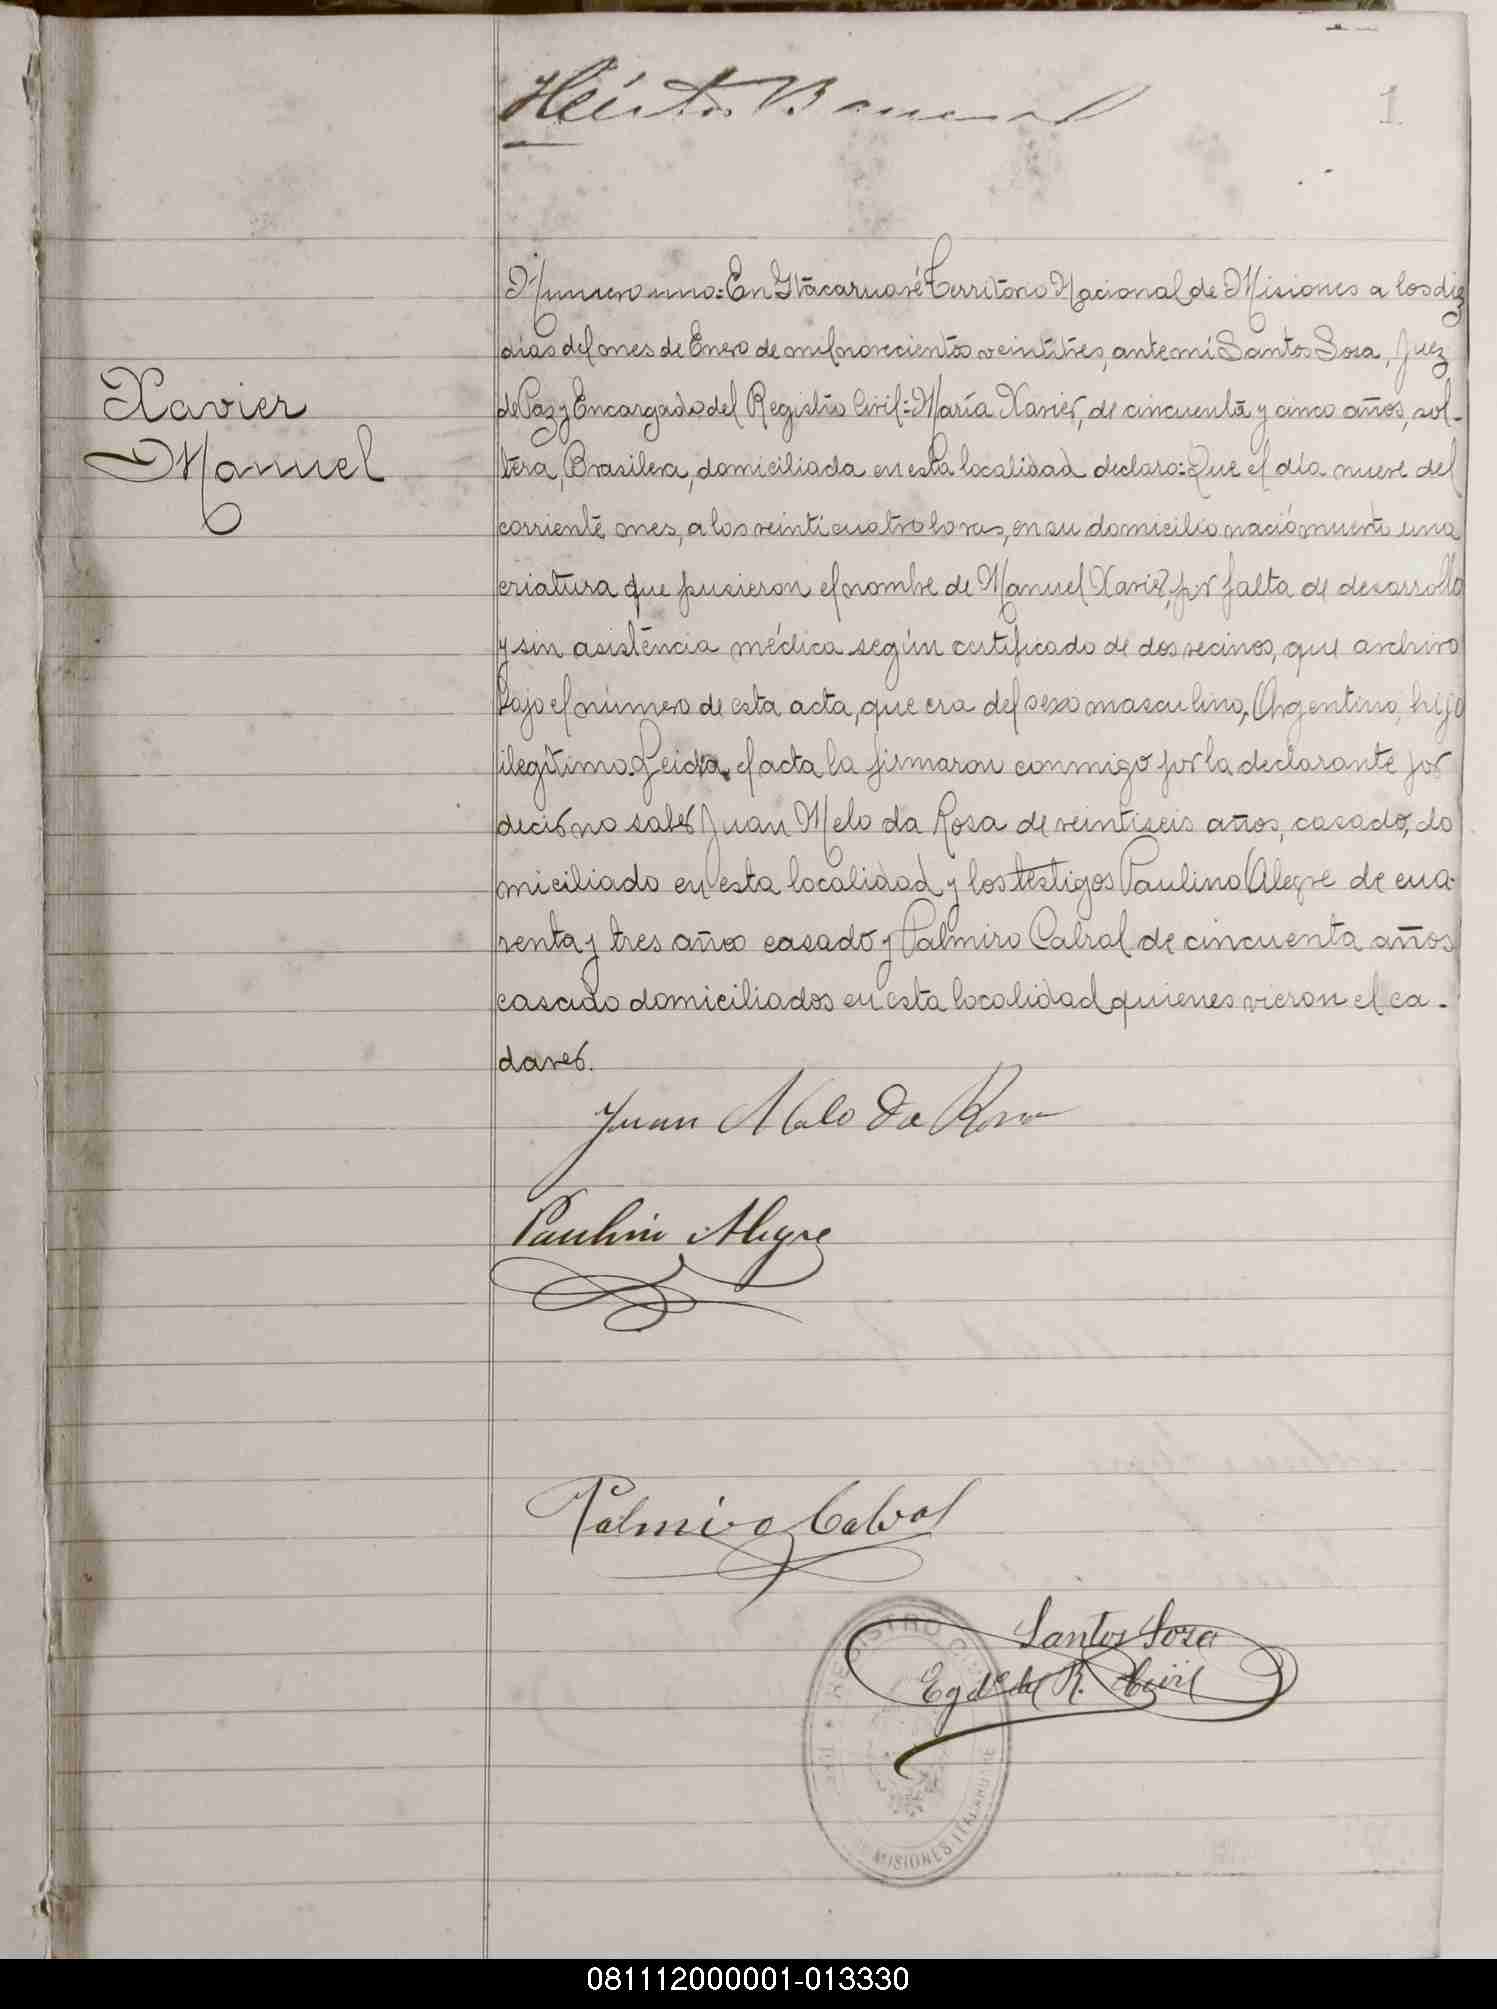 Héctor Barreral
1
Numero uno: En Ytacaruaré Territorio Nacional de Misiones a los diez
dias del mes de Enero de mil novecientos veintitres, ante mí Santos Sosa, Juez
de Paz y Encargado del Registro Civil: María Xavier, de cincuenta y cinco años, sol-
tera, Brasilera, domiciliada en esta localidad declaro: Que el día nueve del
corriente mes, a las veinticuatro horas, en su domicilio nació muerto una
criatura que pusieron el nombre de Manuel Xavier, por falta de desarrollo
y sin asistencia médica según certificado de dos vecinos, que archivo
bajo el número de esta acta, que era del sexo masculino, Argentino, hijo
ilegítimo. Leida el acta la firmaron conmigo por la declarante por
decir no saber Juan Melo da Rosa de veintiseis años, casado, do
miciliado en esta localidad y los testigos Paulino Alegre de cua-
renta y tres años casado y Palmiro Cabral de cincuenta años
casado domiciliados en esta localidad quienes vieron el ca-
daver.
Xavier
Manuel
Juan Melo da Rosa
Paulino Alegre
Palmiro Cabral
Santos Sosa
Egdo del R. Civil
REGISTRO CIVIL
MISIONES ITACARUARE
081112000001-013330